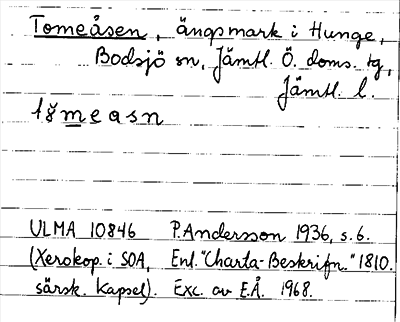 Tomeåsen, ängsmark i Hunge,
Bodsjö sn, Jämtl. Ö. doms. tg,
Jämtl. l.
measn
ULMA 10846 P. Andersson 1936, s. 6.
(Xerokop. i SOA, Enl. "Charta-Beskrifn." 1810.
särsk. kapsel). Exc. av E.Å. 1968.